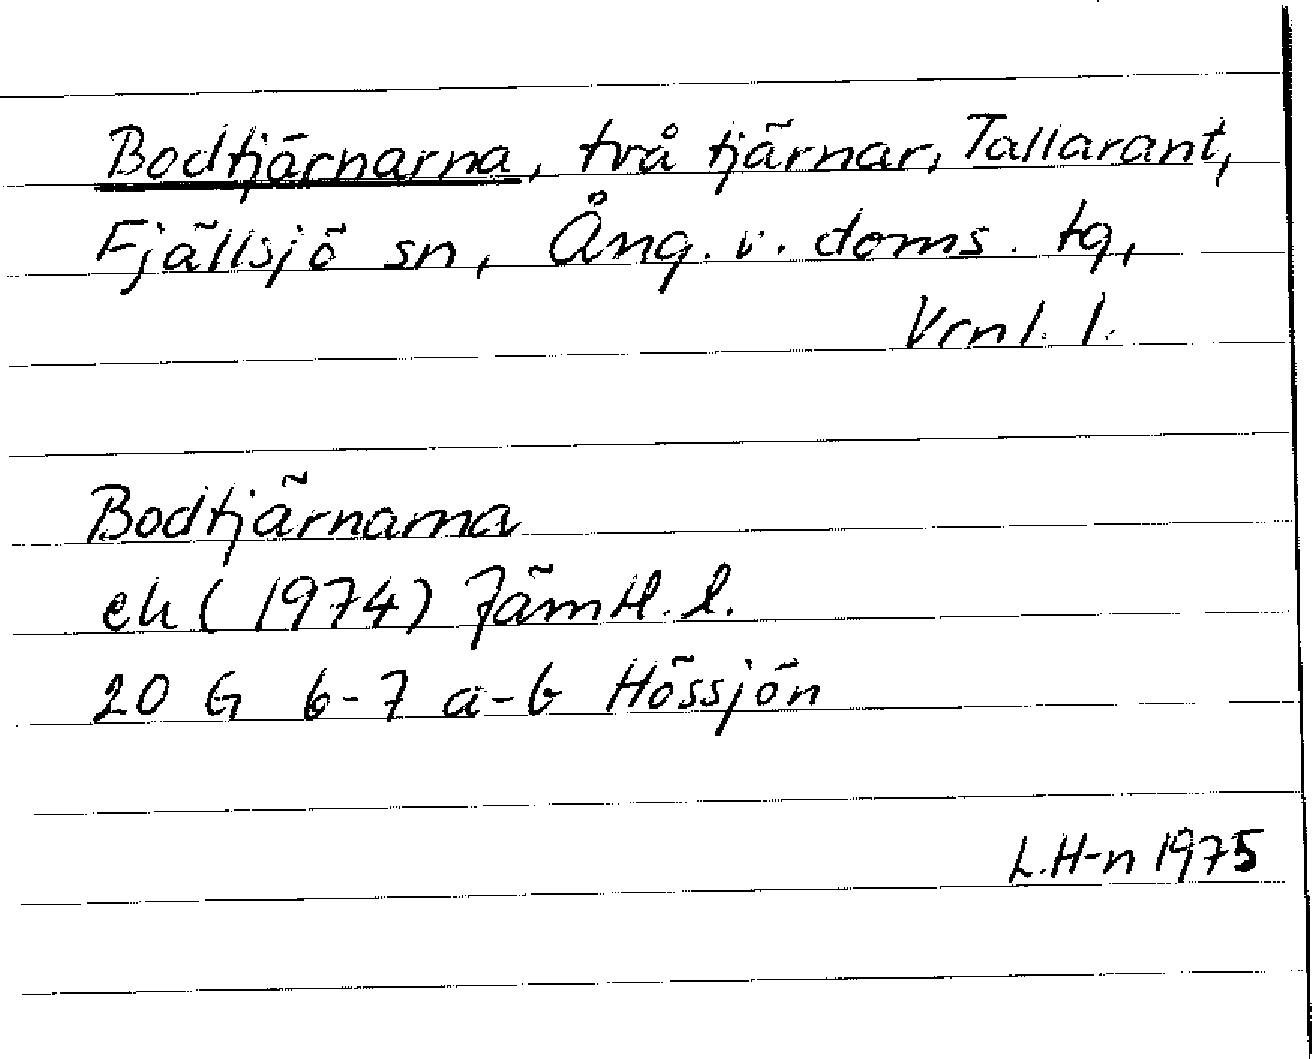 Bodtjärnarna, två tjärnar, Tallarant,
Fjällsjö sn, Ång. v. doms. tg,
Vrnl. l.
Bodtjärnarna
ek (1974) Jämtl. l.
20 G 6-7 a-b Hössjön
L.H-n 1975